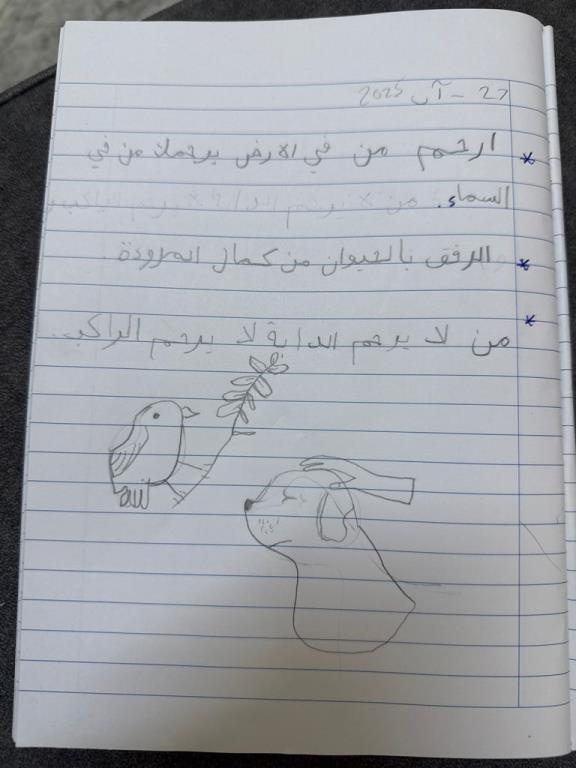 27 - آب 2025
* ارحم من في الارض يرحمك من في
السماء. من لا يرحم الدابة لا يرحم الراكب
* الرفق بالحيوان من كمال المروءة.
* من لا يرحم الدابة لا يرحم الراكب.